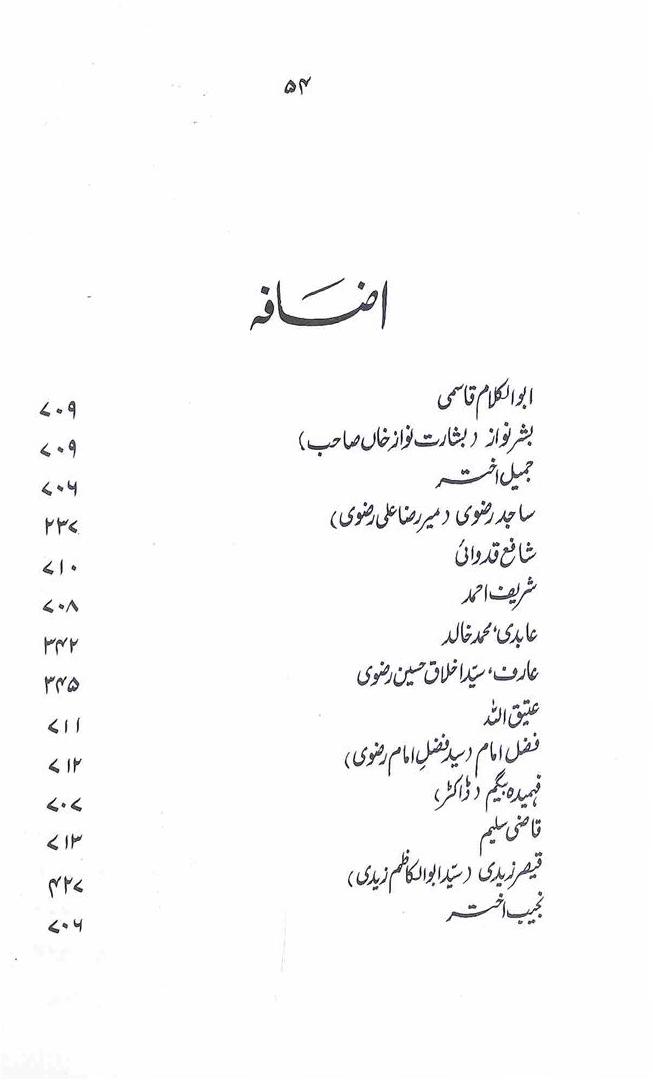 ۵۴
اضافہ
ابوالکلام قاسمی ۷۰۹
بشر نواز (بشارت نواز خاں صاحب) ۷۰۹
جمیل اختر ۷۰۶
ساجد رضوی (میر رضا علی رضوی) ۲۳۷
شافع قدوائی ۷۱۰
شریف احمد ۷۰۸
عابدی، محمد خالد ۳۴۲
عارف، سیّد اخلاق حسین رضوی ۳۴۵
عتیق اللہ ۷۱۱
فضل امام (سید فضلِ امام رضوی) ۷۱۲
فہمیدہ بیگم (ڈاکٹر) ۷۰۷
قاضی سلیم ۷۱۳
قیصر زیدی (سیّد ابوالکاظم زیدی) ۴۲۷
نجیب اختر ۷۰۶